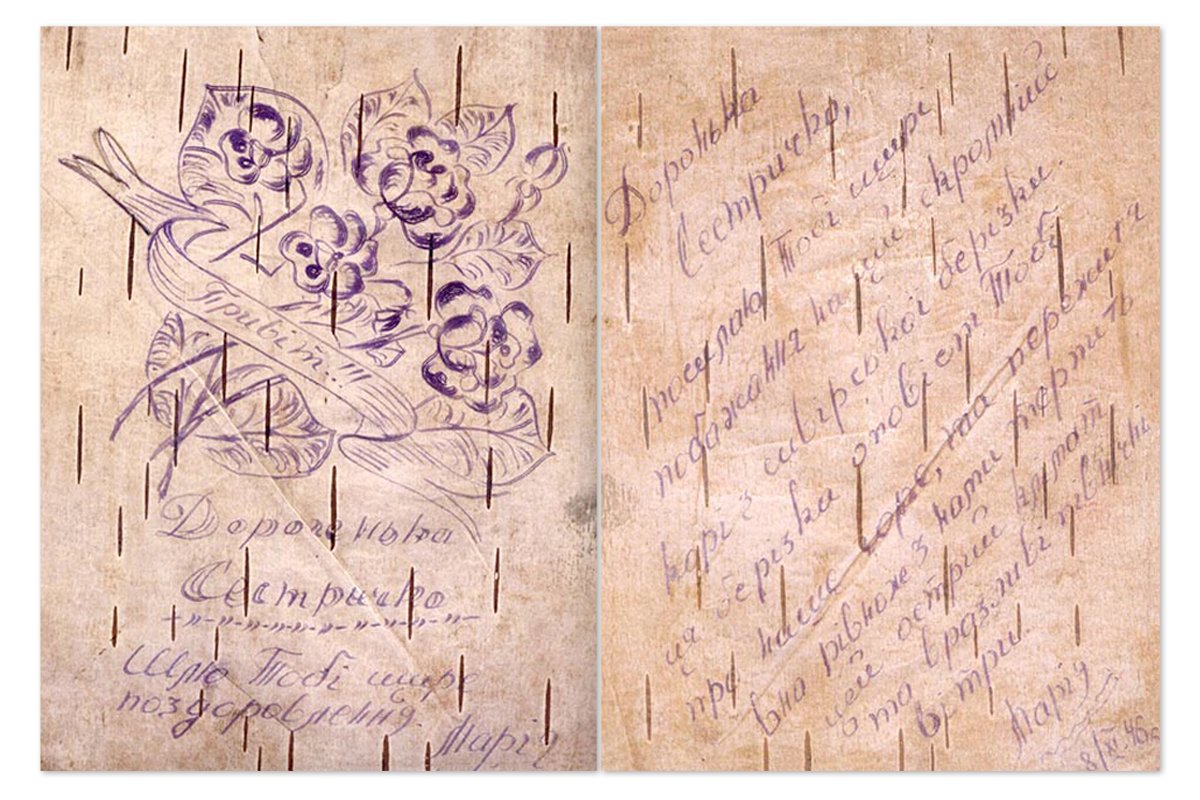 Привіт!!!
Дорогенька
Сестричко
Шлю Тобі щире
поздоровлення.
Марія
Доронька
Сестричко,
посилаю Тобі щире
побажання на цій скромній
карі з сибірської берізки.
ця берізка оповість Тобі
про наше горе, та пережиття
вна рівнож з нами терпить
цей острий климат
та вразливі північні
вітри.
Марія
8/XI.46р